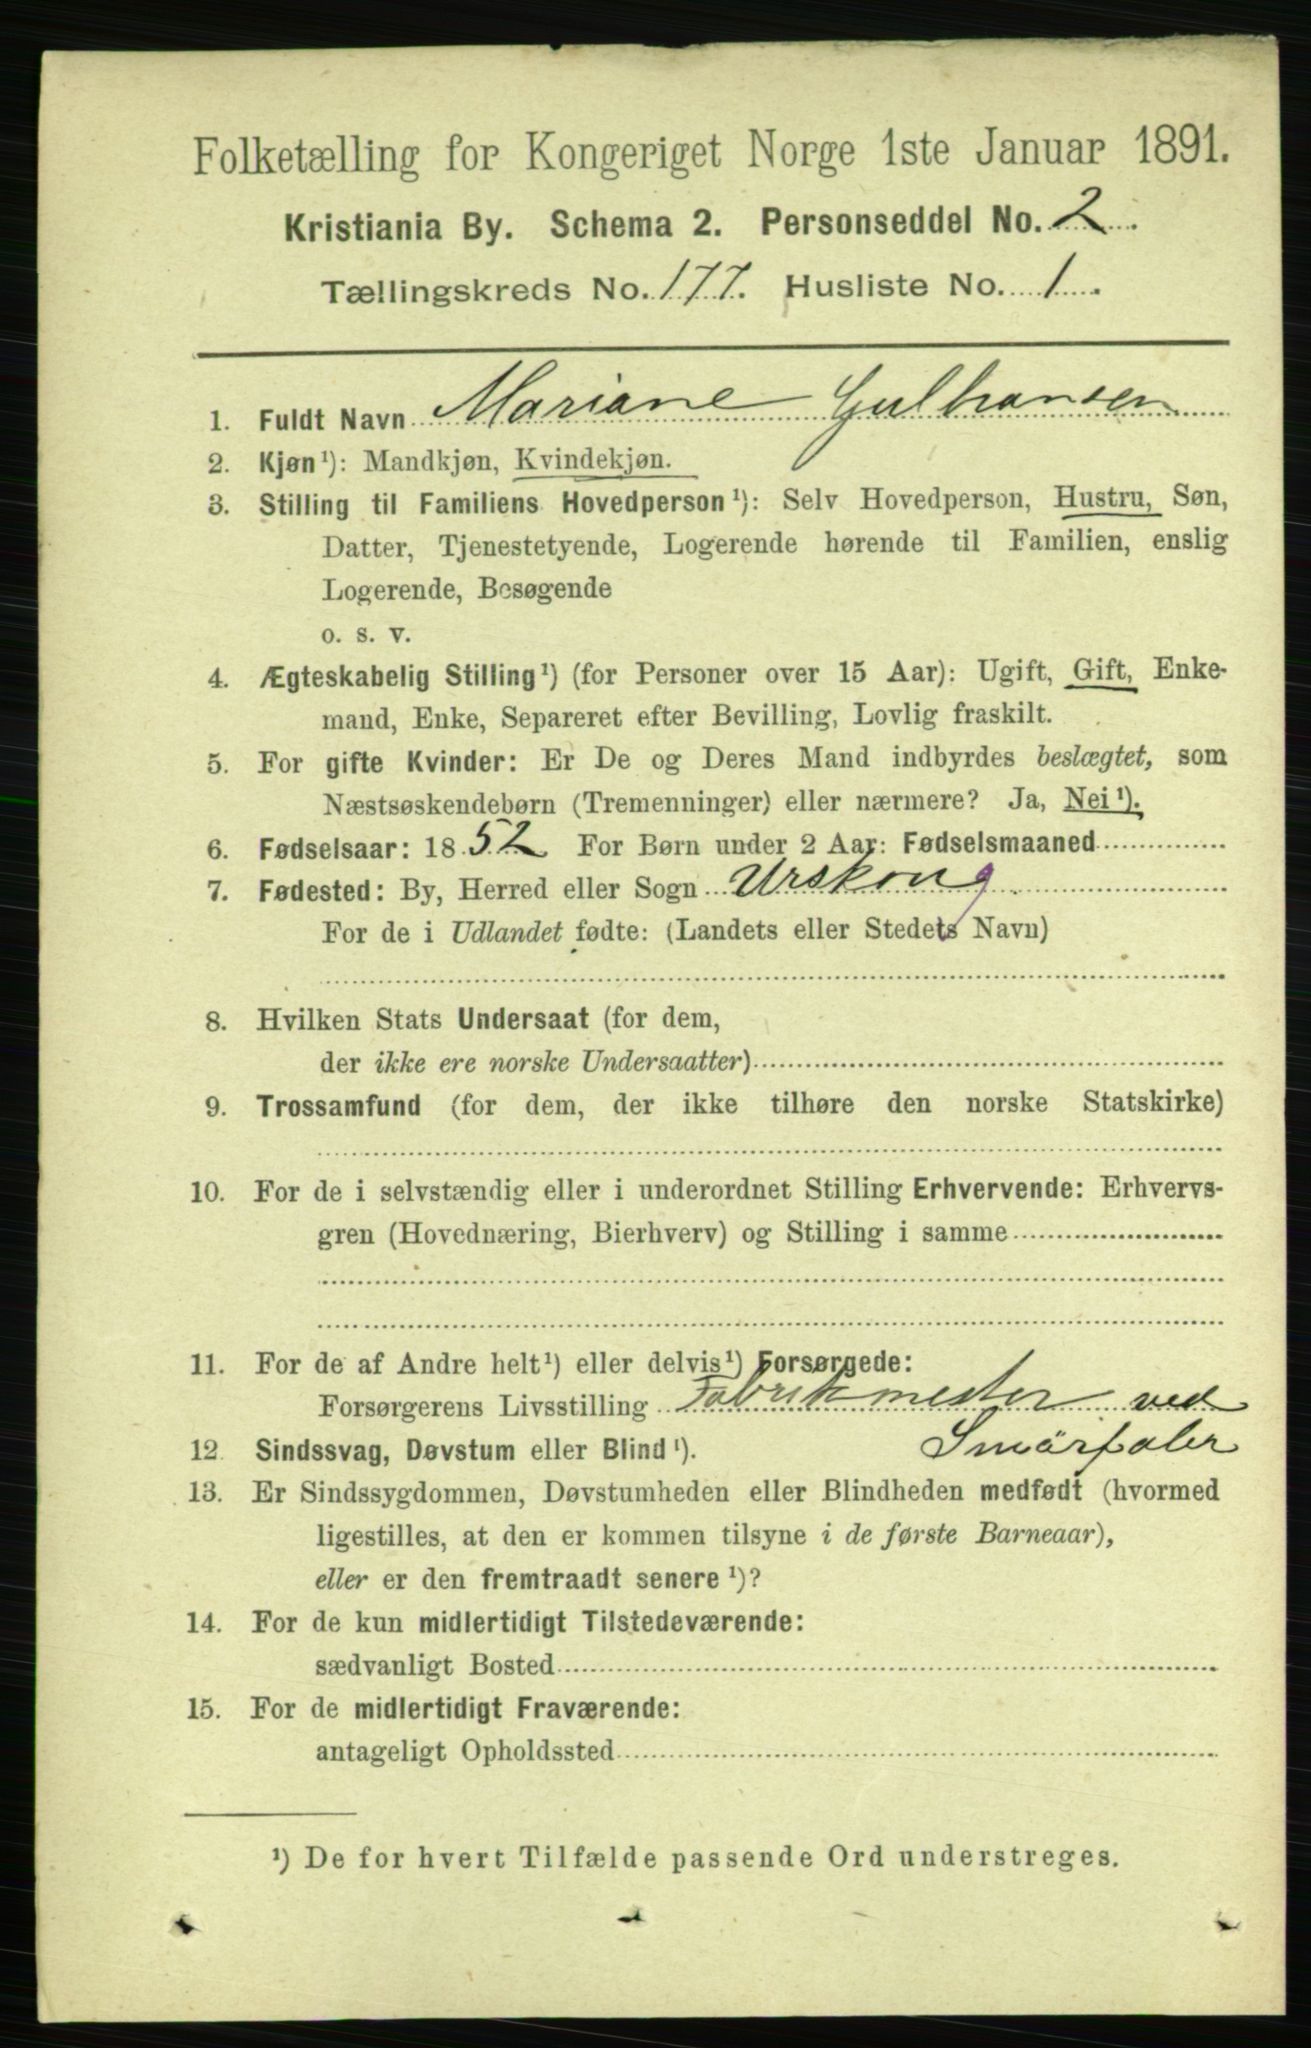 Folketælling for Kongeriget Norge 1ste Januar 1891.
Kristiania By. Schema 2. Personseddel No. 2.
Tællingskreds No. 177. Husliste No. 1.
1. Fuldt Navn Mariane Gulhansen
2. Kjøn¹): Mandkjøn, Kvindekjøn.
3. Stilling til Familiens Hovedperson¹): Selv Hovedperson, Hustru, Søn,
Datter, Tjenestetyende, Logerende hørende til Familien, enslig
Logerende, Besøgende
o. s. v.
4. Ægteskabelig Stilling¹) (for Personer over 15 Aar): Ugift, Gift, Enke-
mand, Enke, Separeret efter Bevilling, Lovlig fraskilt.
5. For gifte Kvinder: Er De og Deres Mand indbyrdes beslægtet, som
Næstsøskendebørn (Tremenninger) eller nærmere? Ja, Nei¹).
6. Fødselsaar: 1852 For Børn under 2 Aar: Fødselsmaaned
7. Fødested: By, Herred eller Sogn Urskoug
For de i Udlandet fødte: (Landets eller Stedets Navn)
8. Hvilken Stats Undersaat (for dem,
der ikke ere norske Undersaatter)
9. Trossamfund (for dem, der ikke tilhøre den norske Statskirke)
10. For de i selvstændig eller i underordnet Stilling Erhvervende: Erhvervs-
gren (Hovednæring, Bierhverv) og Stilling i samme
11. For de af Andre helt¹) eller delvis¹) Forsørgede:
Forsørgerens Livsstilling Fabrikmester ved
Smörfabr
12. Sindssvag, Døvstum eller Blind¹).
13. Er Sindssygdommen, Døvstumheden eller Blindheden medfødt (hvormed
ligestilles, at den er kommen tilsyne i de første Barneaar),
eller er den fremtraadt senere¹)?
14. For de kun midlertidigt Tilstedeværende:
sædvanligt Bosted
15. For de midlertidigt Fraværende:
antageligt Opholdssted
¹) De for hvert Tilfælde passende Ord understreges.